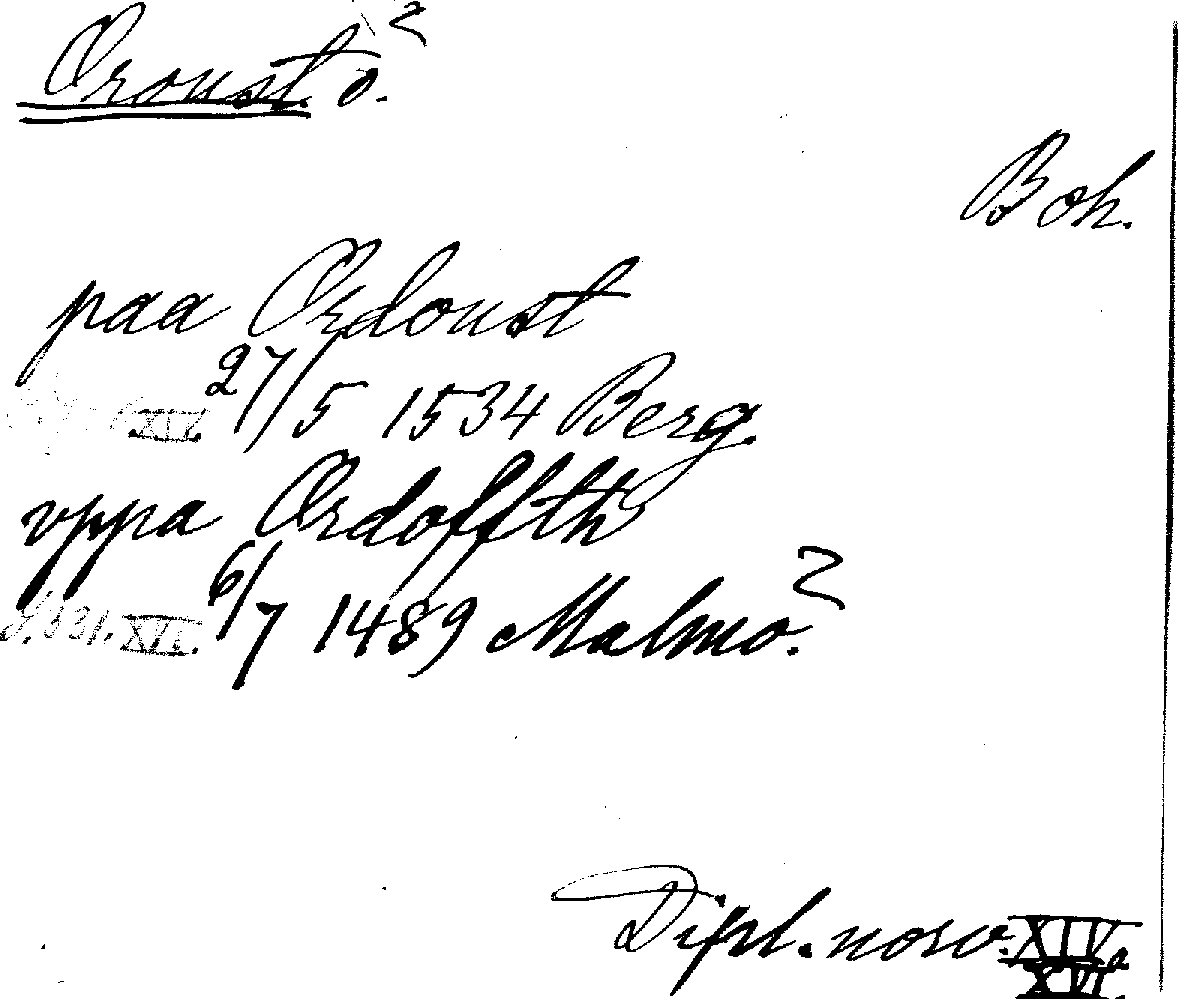 Oroust. ö.
Boh.
paa Ordoust
XIV. 27/5 1534 Berg.
vppa Ordoffth
S. 331. XVI. 6/7 1489 Malmö.
Dipl. norv. XIV.
XVI.